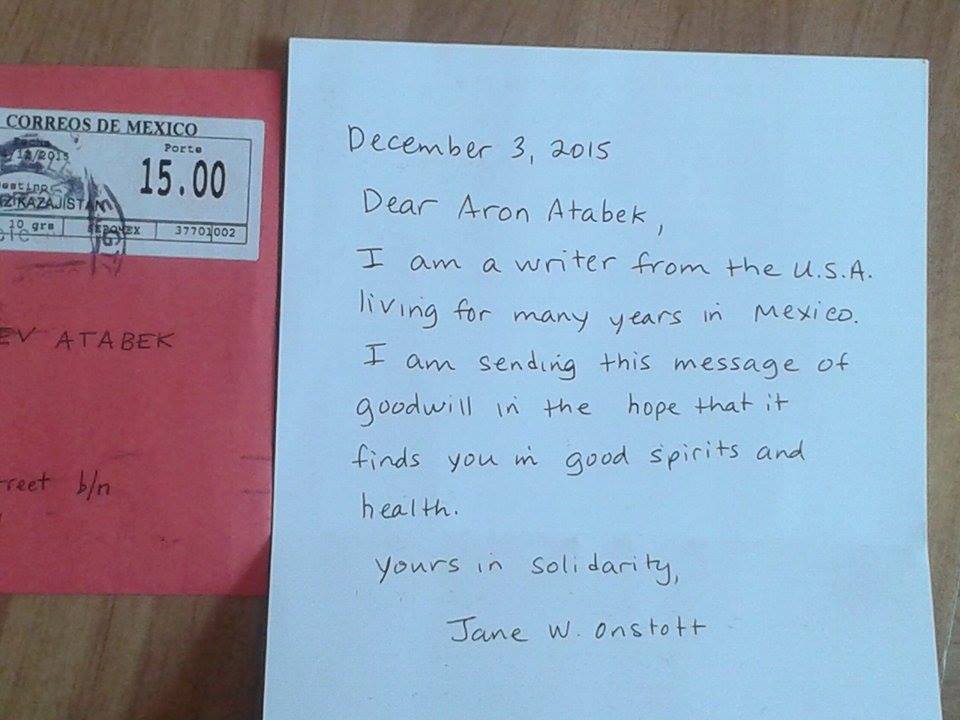 CORREOS DE MEXICO
Fecha
/12/2015
Porte
15.00
estino
KAZAJISTAN
10 grs
SEPOMEX
37701002
EV ATABEK
reet b/n
December 3, 2015
Dear Aron Atabek,
I am a writer from the U.S.A.
living for many years in Mexico.
I am sending this message of
goodwill in the hope that it
finds you in good spirits and
health.
yours in solidarity,
Jane W. Onstott